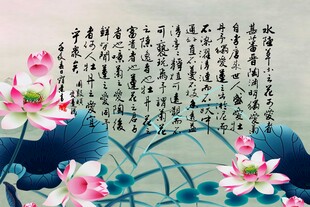 水陸草木之花可愛者
甚蕃晉陶淵明獨愛菊
自李唐來世人盛愛牡
丹予獨愛蓮之出淤泥而
不染濯清漣而不妖中
通外直不蔓不枝香遠益
清亭亭淨植可遠觀而不
可褻玩焉予謂菊花
之隱逸者也牡丹花之
富貴者也蓮花之君子
者也噫菊之愛陶後
鮮有聞蓮之愛同予
者何人牡丹之愛宜乎
眾矣